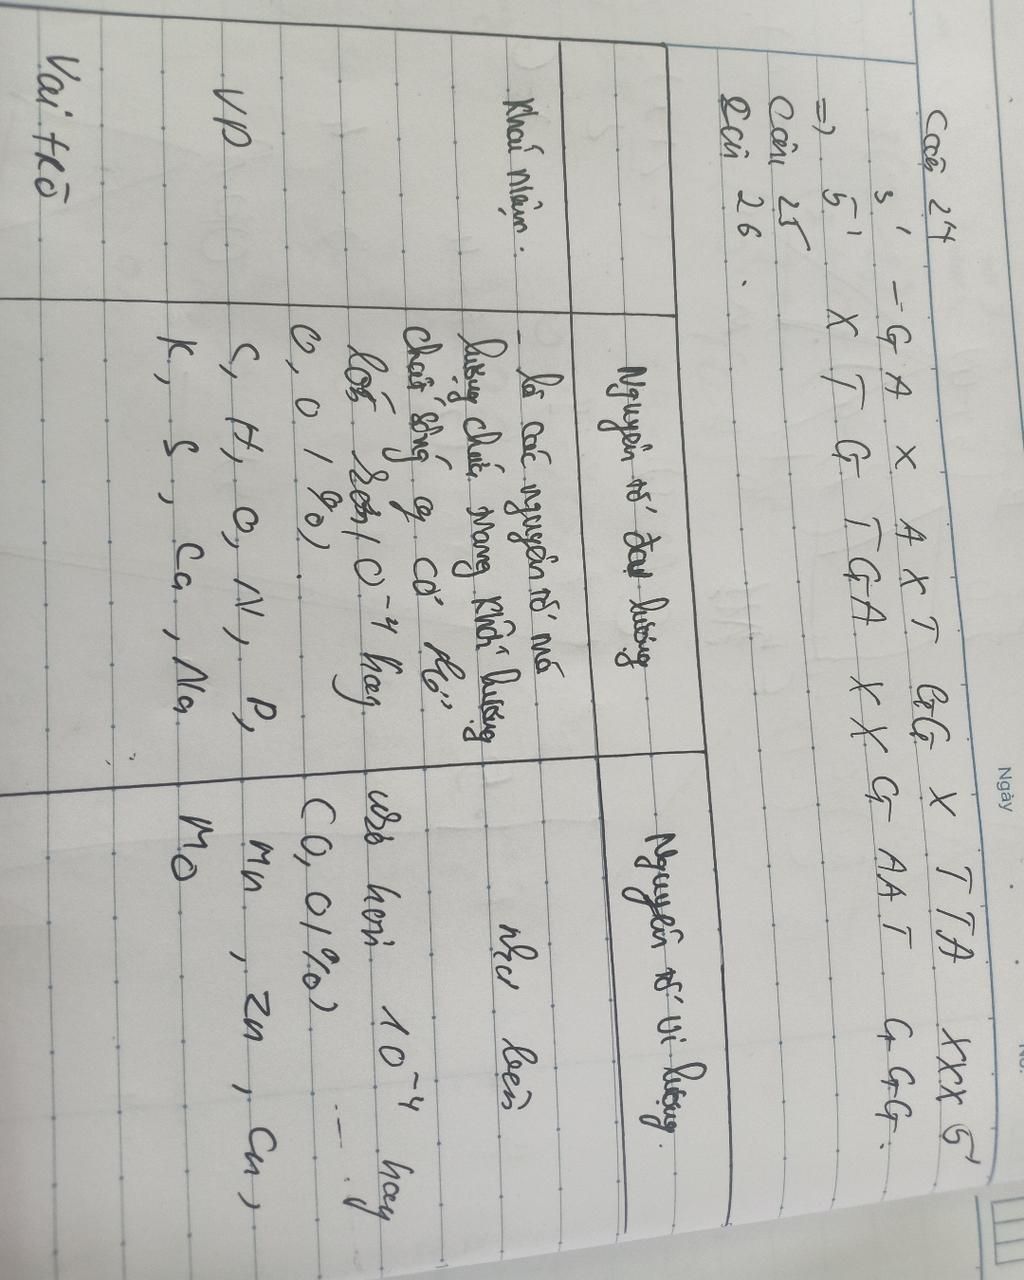 Ngày
No.
Câu 24
3' - G A X A X T G G X T T A X X X 5'
=> 5' X T G T G A X X G A A T G G G.
Câu 25
Câu 26.
Nguyên tố đại lượng
Nguyên tố vi lượng.
Khái niệm.
- là các nguyên tố mà
lượng chứa mang khối lượng
chất sống cơ thể
lớn hơn 10⁻⁴ hay
0,01%)
như trên
hơn 10⁻⁴ hay
(0,01%) ...
VD
C, H, O, N, P,
K, S, Ca, Na
Mn, Zn, Cu,
Mo
Vai trò